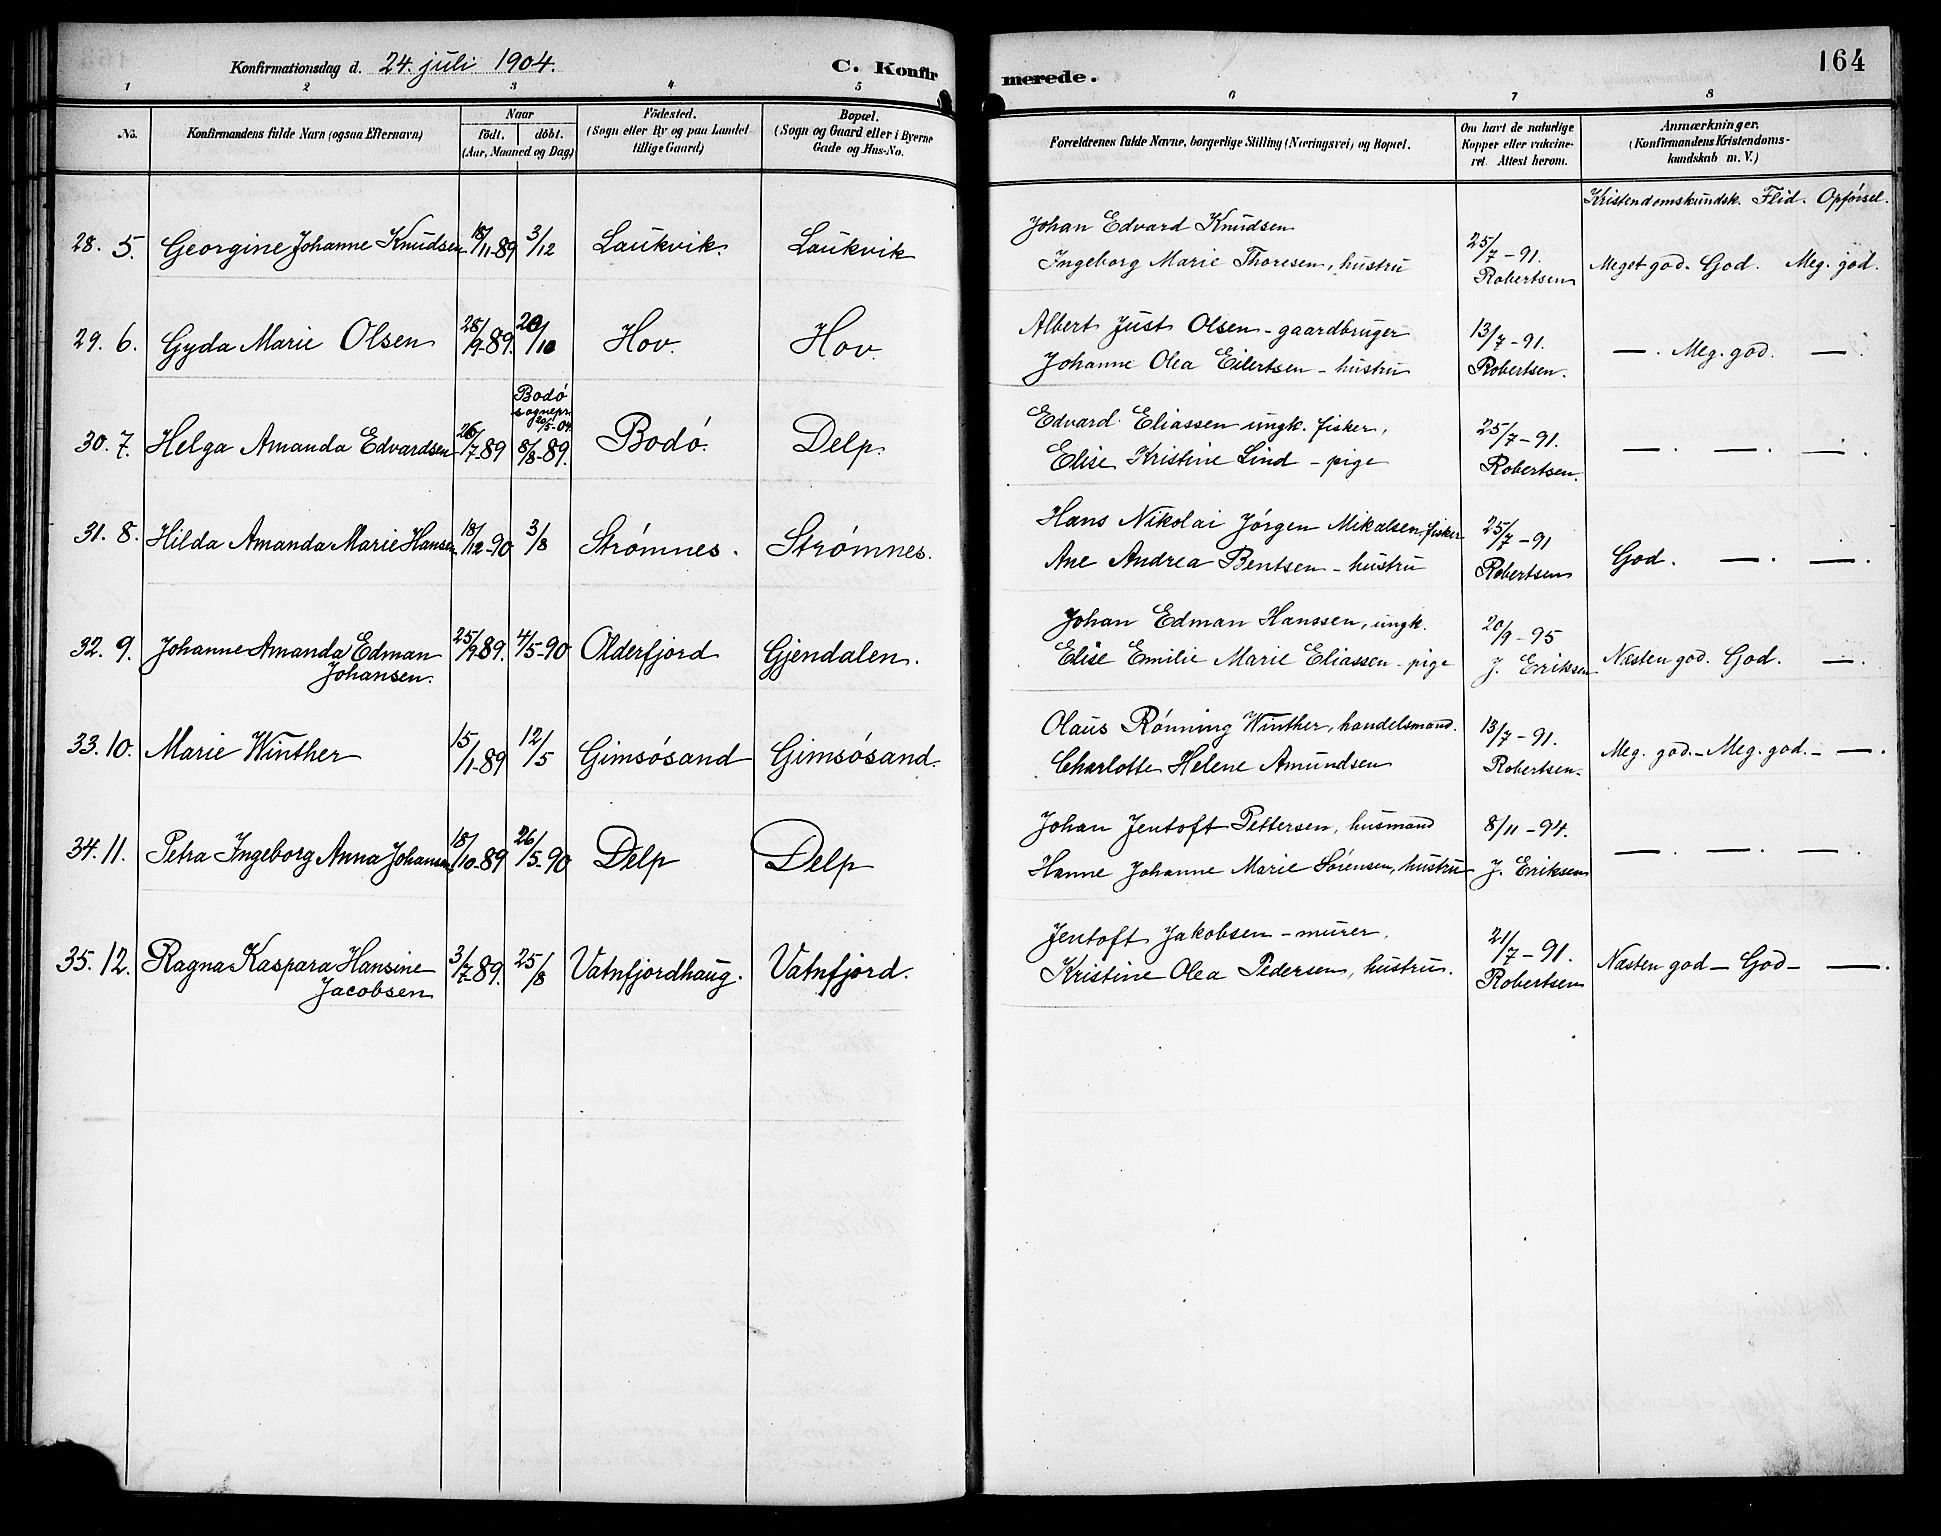 Konfirmationsdag d. 24. juli 1904. C. Konfirmerede. 164
1 2 3 4 5 6 7 8
No. Konfirmandens fulde Navn (ogsaa Efternavn) Naar født. døbt. (Aar, Maaned og Dag)
Fødested. (Sogn eller By og paa Landet tillige Gaard)
Bopæl. (Sogn og Gaard eller i Byerne Gade og Hus-No.
Forældrenes fulde Navne, borgerlige Stilling (Næringsvei) og Bopæl.
Om havt de naturlige Kopper eller vakcineret. Attest herom.
Anmærkninger. (Konfirmandens Kristendomskundskab m. V.)
Kristendomskundsk. Flid. Opførsel.
28. 5. Georgine Johanne Knudsen 18/11-89 3/12 Laukvik. Laukvik
Johan Edvard Knudsen
Ingeborg Marie Thoresen, hustru
25/7-91. Robertsen Meget god. God. Meg. god.
29. 6. Gyda Marie Olsen 28/9-89. 20/10 Hov. Hov.
Albert Just Olsen - gaardbruger
Johanne Olea Eilertsen - hustru
13/7-91. Robertsen. —. Meg. god. —.
Bodø
sognepr.
20/5-04
30. 7. Helga Amanda Edvardsen 26/7-89 8/8-89. Bodø. Delp.
Edvard Eliassen ungk. fisker,
Elise Kristine Lind - pige
25/7-91. Robertsen. —. —. —.
31. 8. Hilda Amanda Marie Hansen 18/12-90 3/8 Strømnes. Strømnes.
Hans Nikolai Jørgen Mikalsen, fisker
Ane Andrea Bentsen - hustru
25/7-91 Robertsen God. —. —.
32. 9. Johanne Amanda Edman
Johansen. 25/9-89. 4/5-90 Olderfjord Gjendalen.
Johan Edman Hanssen, ungk.
Elise Emilie Marie Eliassen - pige
20/9-95 J. Eriksen Næsten god. God. —.
33. 10. Marie Winther 15/1-89 12/5 Gimsøsand Gimsøsand.
Olaus Rønning Winther, handelsmand.
Charlotte Helene Amundsen
13/7-91. Robertsen. Meg. god. - Meg. god. - —.
34. 11. Petra Ingeborg Anna Johansen 18/10-89 26/5-90 Delp Delp
Johan Jentoft Pettersen, husmand
Hanne Johanne Marie Sørensen, hustru
8/11-94. J. Eriksen —. —. —.
35. 12. Ragna Kaspara Hansine
Jacobsen 3/7-89. 25/8 Vatnfjordhaug. Vatnfjord.
Jentoft Jakobsen - murer,
Kristine Olea Pedersen, hustru.
21/7-91. Robertsen Næsten god - God - —.